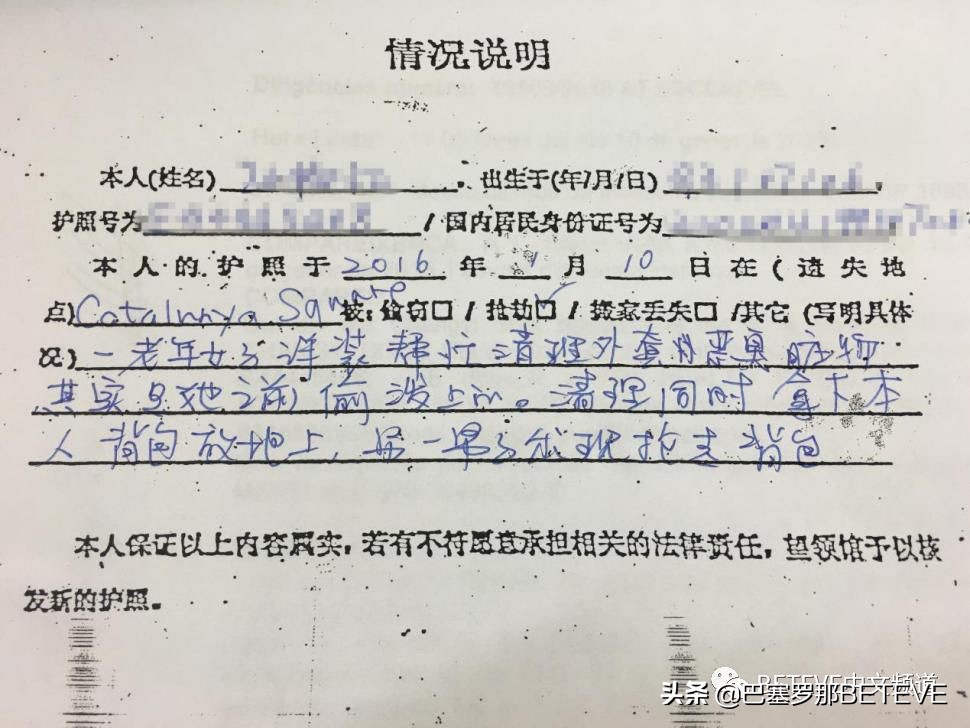 情况说明
本人(姓名)，出生于(年/月/日)，
护照号为 / 国内居民身份证号为
本人的护照于 2016 年 1 月 10 日在(遗失地
点) Catalunya Square 被：偷窃□ / 抢劫□✓ / 搬家丢失□ /其它 (写明具体
况) 一老年女子洋装帮忙清理外套外恶臭脏物
其实是她之前偷泼上的。清理同时拿下本
人背包放地上，另一男子出现抢走背包
本人保证以上内容属实，若有不符愿意承担相关的法律责任，望领馆予以核
发新的护照。
BETEVE中文频道
头条 @巴塞罗那BETEVE